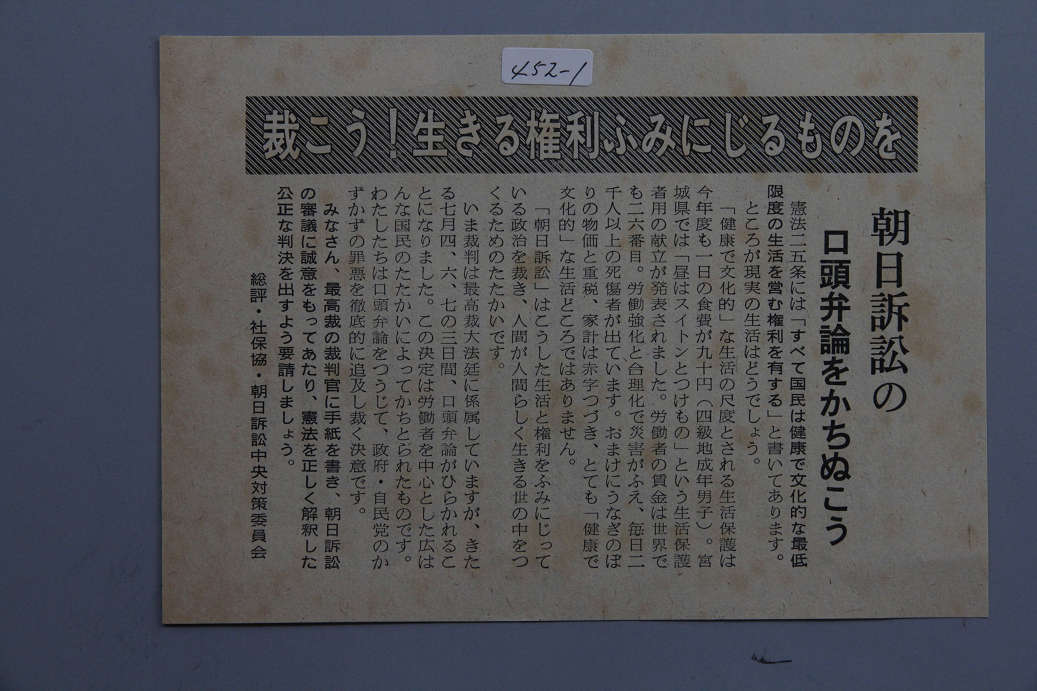 452-1
裁こう！生きる権利ふみにじるものを
朝日訴訟の
口頭弁論をかちぬこう
憲法二五条には「すべて国民は健康で文化的な最低
限度の生活を営む権利を有する」と書いてあります。
ところが現実の生活はどうでしょう。
「健康で文化的」な生活の尺度とされる生活保護は
今年度も一日の食費が九十円（四級地成年男子）。宮
城県では「昼はスイトンとつけもの」という生活保護
者用の献立が発表されました。労働者の賃金は世界で
も二六番目。労働強化と合理化で災害がふえ、毎日二
千人以上の死傷者が出ています。おまけにうなぎのぼ
りの物価と重税、家計は赤字つづき、とても「健康で
文化的」な生活どころではありません。
「朝日訴訟」はこうした生活と権利をふみにじって
いる政治を裁き、人間が人間らしく生きる世の中をつ
くるためのたたかいです。
いま裁判は最高裁大法廷に係属していますが、きた
る七月四、六、七の三日間、口頭弁論がひらかれるこ
とになりました。この決定は労働者を中心とした広は
んな国民のたたかいによってかちとられたものです。
わたしたちは口頭弁論をつうじて、政府・自民党のか
ずかずの罪悪を徹底的に追及し裁く決意です。
みなさん、最高裁の裁判官に手紙を書き、朝日訴訟
の審議に誠意をもってあたり、憲法を正しく解釈した
公正な判決を出すよう要請しましょう。
総評・社保協・朝日訴訟中央対策委員会